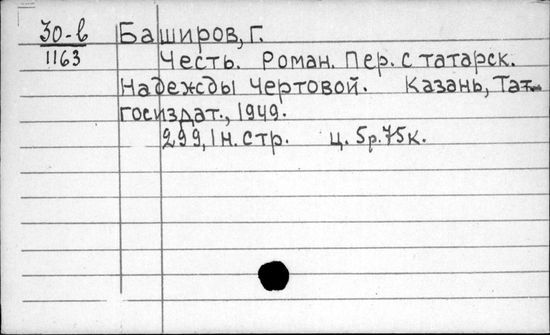 30-в Баширов, Г.
1163 Честь. Роман. Пер. с татарск.
Надежды Чертовой. Казань, Тат-
госиздат., 1949.
299, 1 н. стр. ц. 5р.75к.